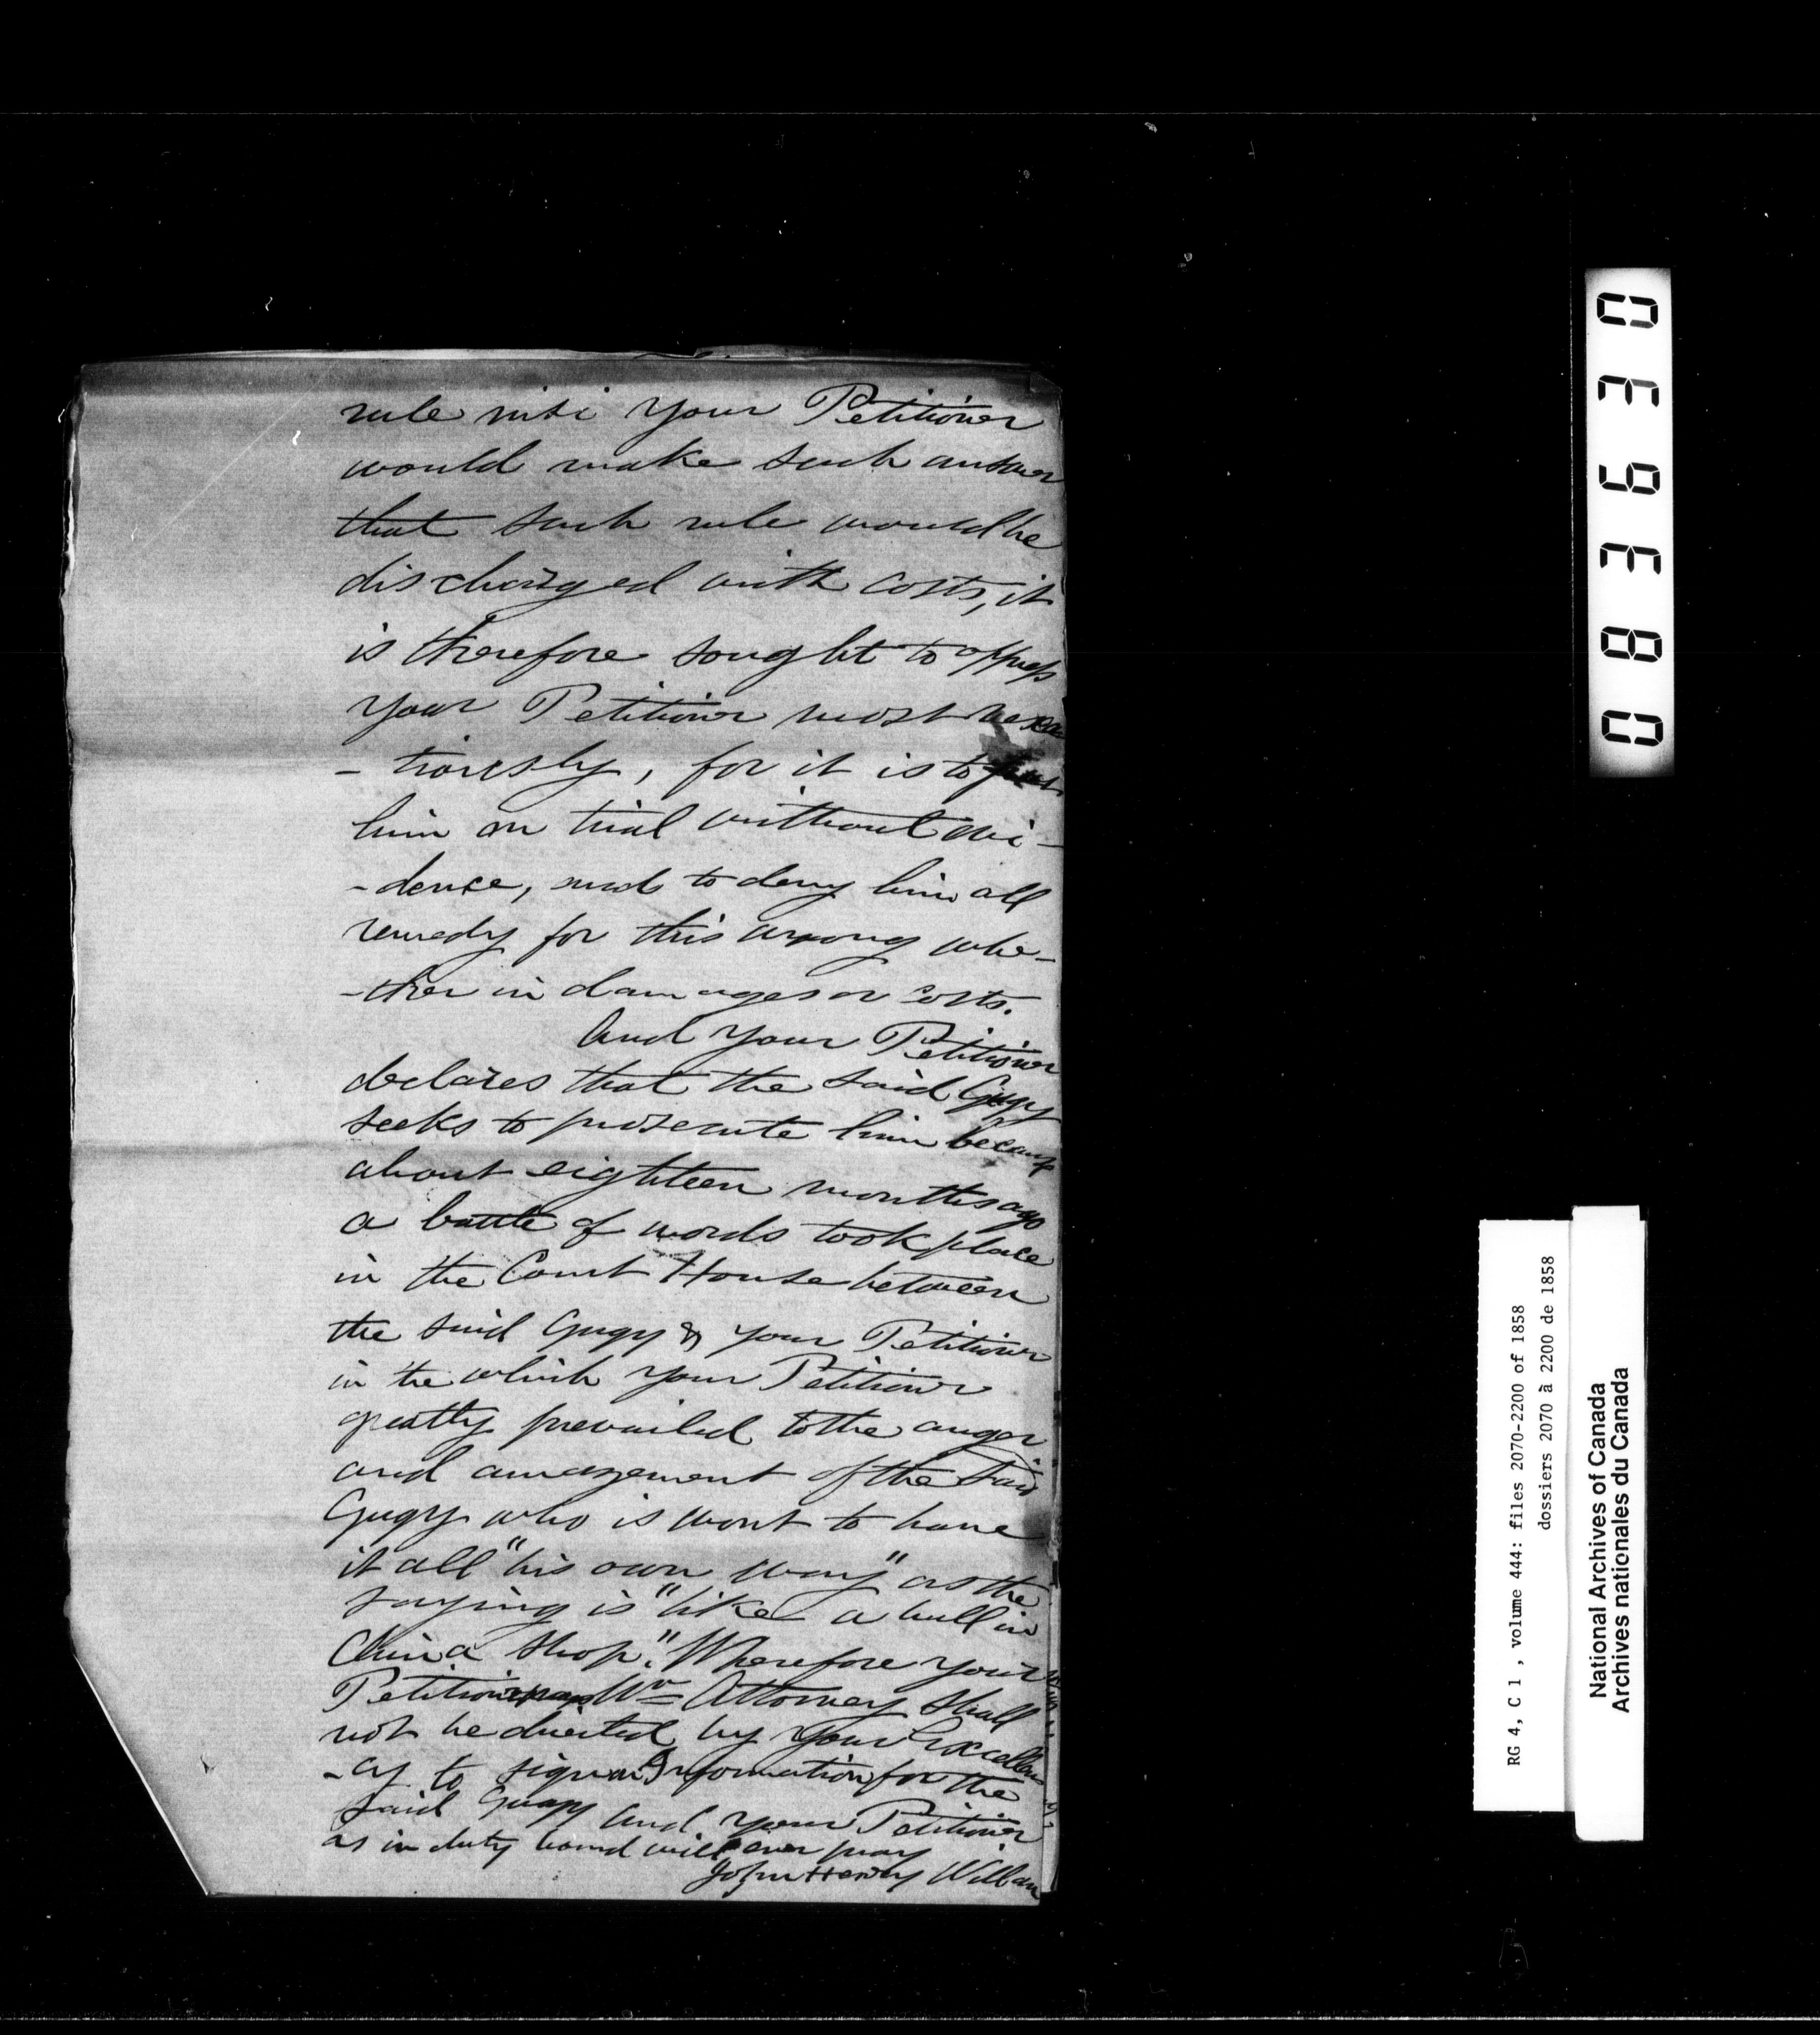 rule nisi your Petitioner
would make such answer
that such rule would be
discharged with costs, it
is therefore sought to oppress
your Petitioner most vexa
- tiously, for it is to put
him on trial without evi-
-dence, and to deny him all
remedy for this wrong whe-
-ther in damages or costs.
And your Petitioner
declares that the said Gugy
seeks to prosecute him because
about eighteen months ago
a battle of words took place
in the Court House between
the said Gugy & your Petitioner
in the which your Petitioner
greatly prevailed to the anger
and amazement of the said
Gugy who is wont to have
it all "his own way" as the
saying is "like a bull in
China shop". Wherefore your
Petitioner Attorney shall
not be directed by your Excellen
-cy to sign an Information for the
said Gugy and your Petitioner
as in duty bound will ever pray
John Henry Willan
083630
RG 4, C 1 , volume 444: files 2070-2200 of 1858
dossiers 2070 à 2200 de 1858
National Archives of Canada
Archives nationales du Canada